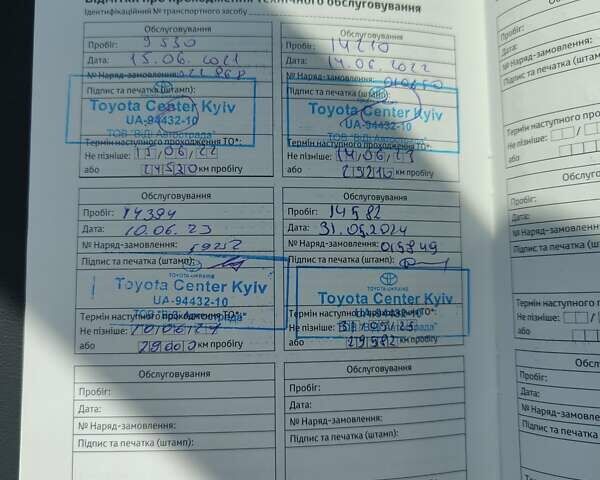 Відмітки про проходження технічного обслуговування
Ідентифікаційний № транспортного засобу
Обслуговування
Пробіг: 9530
Дата: 15.06.2021
№ Наряд-замовлення: 022868
Підпис та печатка (штамп):
Toyota Center Kyiv
UA-94432-10
ТОВ "ВіДі Автострада"
Термін наступного проходження ТО*:
Не пізніше: 15/06/22
або 24530 км пробігу
Обслуговування
Пробіг: 14210
Дата: 14.06.2022
№ Наряд-замовлення:
Підпис та печатка (штамп):
Toyota Center Kyiv
UA-94432-10
ТОВ "ВіДі Автострада"
Термін наступного проходження ТО*:
Не пізніше: 14/06/23
або 29210 км пробігу
Обслуговування
Пробіг: 14394
Дата: 10.06.23
№ Наряд-замовлення:
Підпис та печатка (штамп):
TOYOTA-UKRAINE
Toyota Center Kyiv
UA-94432-10
ТОВ "ВіДі Автострада"
Термін наступного проходження ТО*:
Не пізніше: 10/06/24
або 29000 км пробігу
Обслуговування
Пробіг: 14582
Дата: 31.05.2024
№ Наряд-замовлення: 015849
Підпис та печатка (штамп):
TOYOTA-UKRAINE
Toyota Center Kyiv
UA-94432-10
ТОВ "ВіДі Автострада"
Термін наступного проходження ТО*:
Не пізніше: 31/05/25
або 29582 км пробігу
Обслуговування
Пробіг:
Дата:
№ Наряд-замовлення:
Підпис та печатка (штамп):
Обслуговування
Пробіг:
Дата:
№ Наряд-замовлення:
Підпис та печатка (штамп):
Пробіг:
Дата:
№ Наряд-замовлення:
Підпис та печатка (шта
Термін наступного прохо
Не пізніше:
або
Пробіг:
Дата:
№ Наряд-замовлення:
Підпис та печатка (штам
Термін наступного п
Не пізніше:
або
Пробіг:
Дата:
№ Наряд-замовл
Підпис та печатк